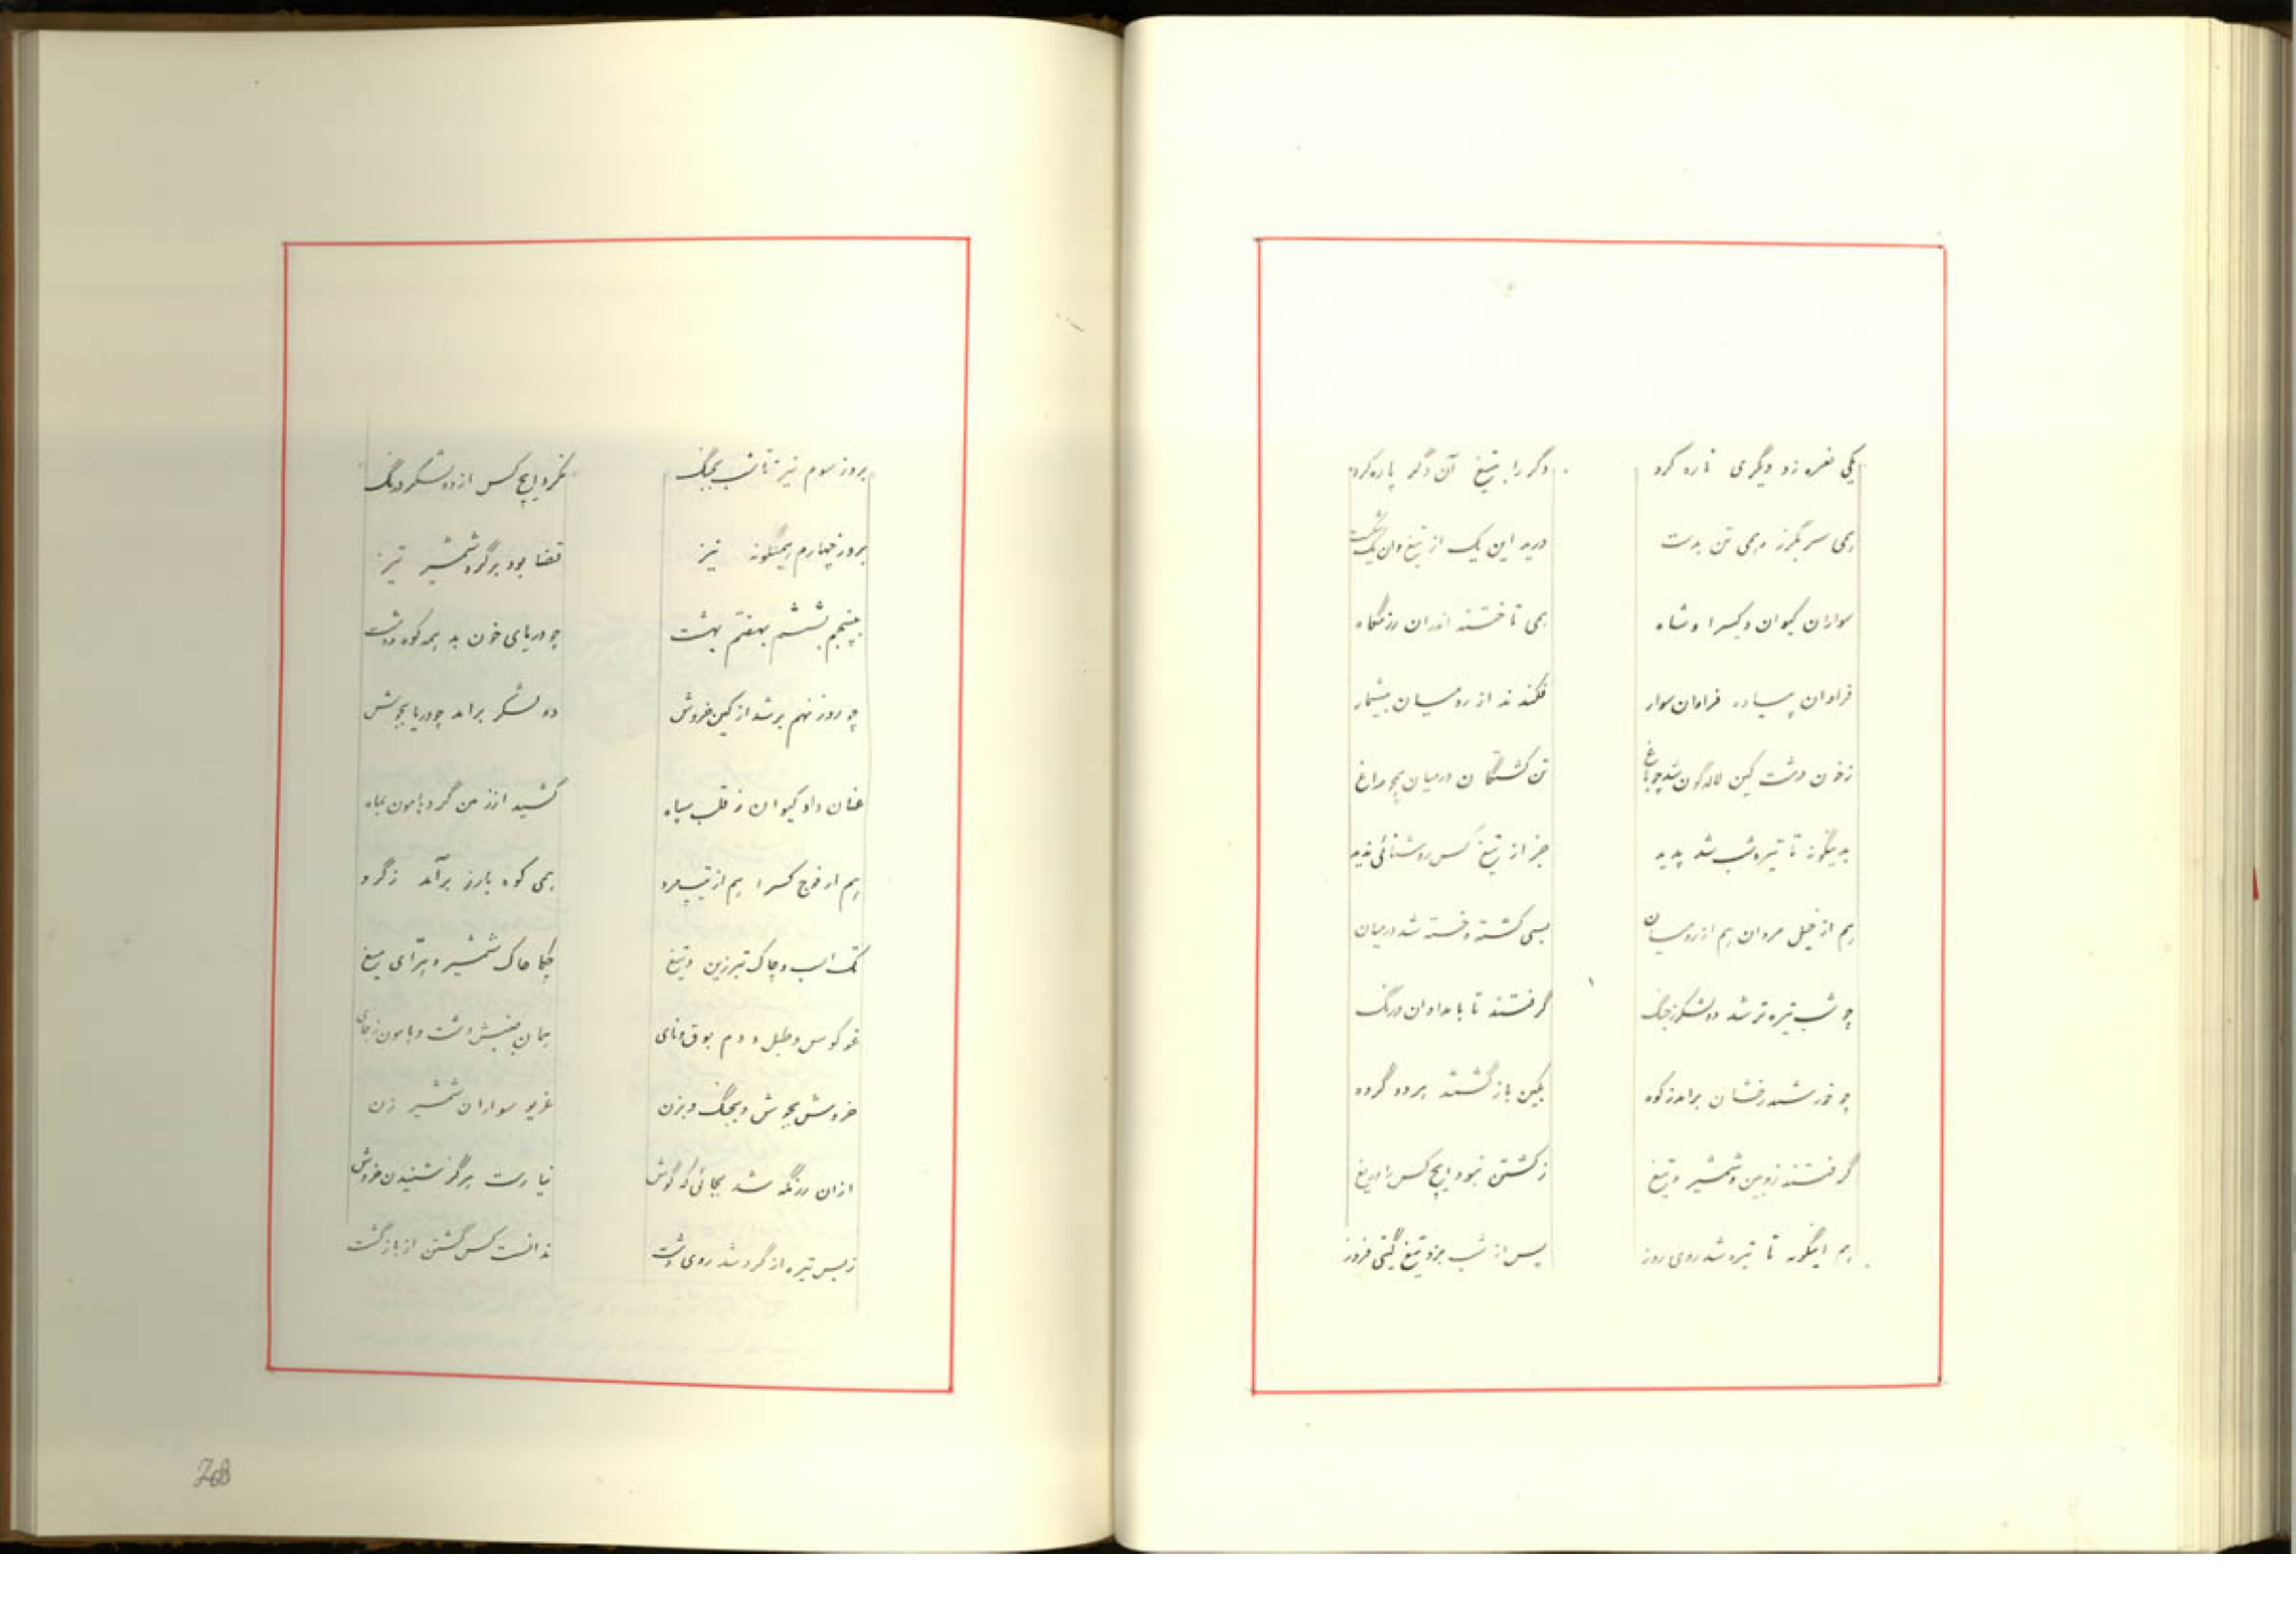 یکی نعره زد دیگری تاره کرد دگر را بتیغ آن دگر پاره کرد
همی سر بگرز و همی تن بدست درید این یک از تیغ وان یک شکست
سواران کیوان و کسرا و شاه همی تاختند اندران رزمگاه
فراوان پیاده فراوان سوار فکندند از رومیان بیشمار
ز خون دشت کین لاله گون شد چو باغ تن کشتگان در میان همچو راغ
بدینگونه تا تیره شب شد پدید جز از تیغ کس روشنائی ندید
هم از خیل مردان هم از رومیان بسی کشته و خسته شد در میان
چو شب تیره تر شد دو لشکر ز جنگ گرفتند تا بامدادان درنگ
چو خورشید رخشان برامد ز کوه بکین باز گشتند هر دو گروه
گرفتند زوبین و شمشیر و تیغ ز کشتن نبود ایچ کس را دریغ
هم اینگونه تا تیره شد روی روز پس از شب بزد تیغ گیتی فروز
بروز سوم نیز تا شب بجنگ نکرد ایچ کس از دو لشکر درنگ
بروز چهارم همینگونه نیز قضا بود بر گرد شمشیر تیز
بپنجم بششم بهفتم بهشت چو دریای خون بد همه کوه و دشت
چو روز نهم برشد از کین خروش دو لشکر برامد چو دریا بجوش
عنان داد کیوان ز قلب سپاه کشید از زمین گرد هامون بماه
هم از فوج کسرا هم از تیپ مرد همی کوه بارز برآمد ز گرد
تک اسب و چاک تبرزین و تیغ چکاچاک شمشیر و
غو کوس و طبل و دم بوق و نای بمان جنبش دشت و هامون ز جای
خروش بجوش و بجنگ و بزن غریو سواران شمشیر زن
ازان رزمگه شد بجائی که گوش نیارست هرگز شنیدن خروش
ز بس تیره از گرد شد روی دشت ندانست کس گشتن از بازگشت
268